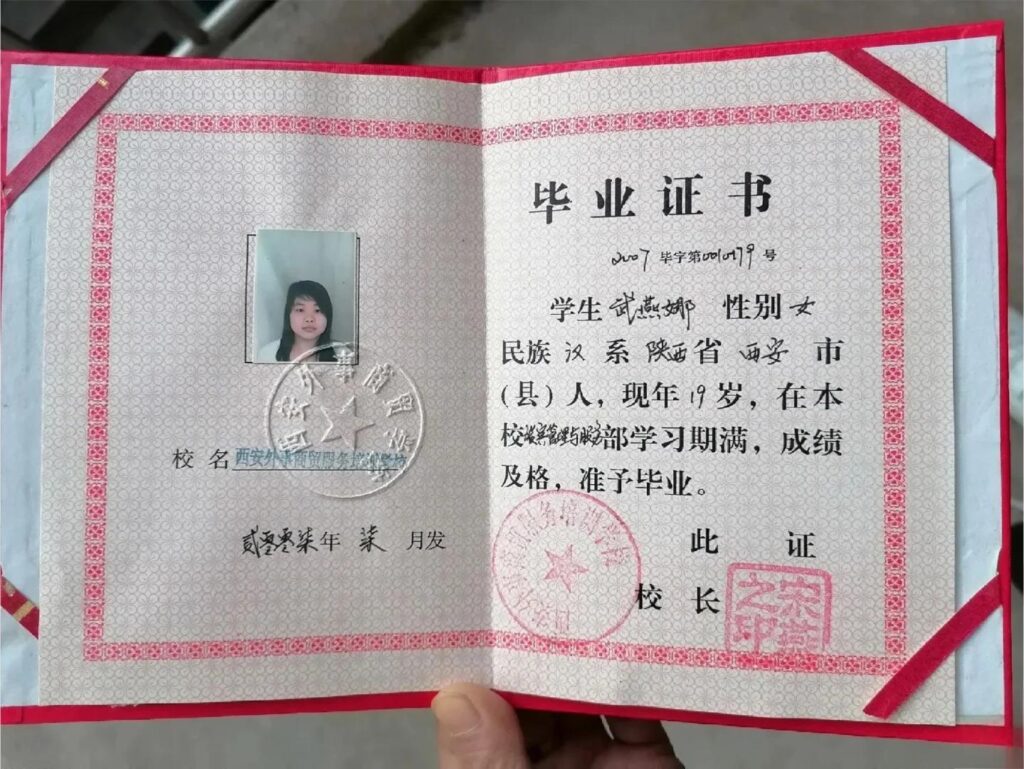 校名 西安外事商贸服务培训学校
贰零零柒年 柒 月发
毕业证书
2007 毕字第0010179号
学生 武燕娜 性别 女
民族 汉 系 陕西 省 西安 市
(县)人,现年19岁,在本
校 管理与服务 部学习期满,成绩
及格,准予毕业。
此 证
校 长
西安外事商贸服务培训学校
之印